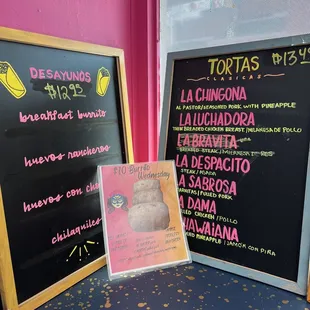 DESAYUNOS
$12.95
breakfast burrito
huevos rancheros
huevos con
chilaquiles
$10 Burrito
Wednesday
TORTAS $13.49
CLASICAS
LA CHINGONA
AL PASTOR/SEASONED PORK WITH PINEAPPLE
LA LUCHADORA
THIN BREADED CHICKEN BREAST/MILANESA DE POLLO
LA BRAVITA
BREADED STEAK/MILANESA DE RES
LA DESPACITO
STEAK/ASADA
LA SABROSA
CARNITAS/PULLED PORK
LA DAMA
CHICKEN/POLLO
HAWAIANA
AND PINEAPPLE/JAMON CON PIÑA